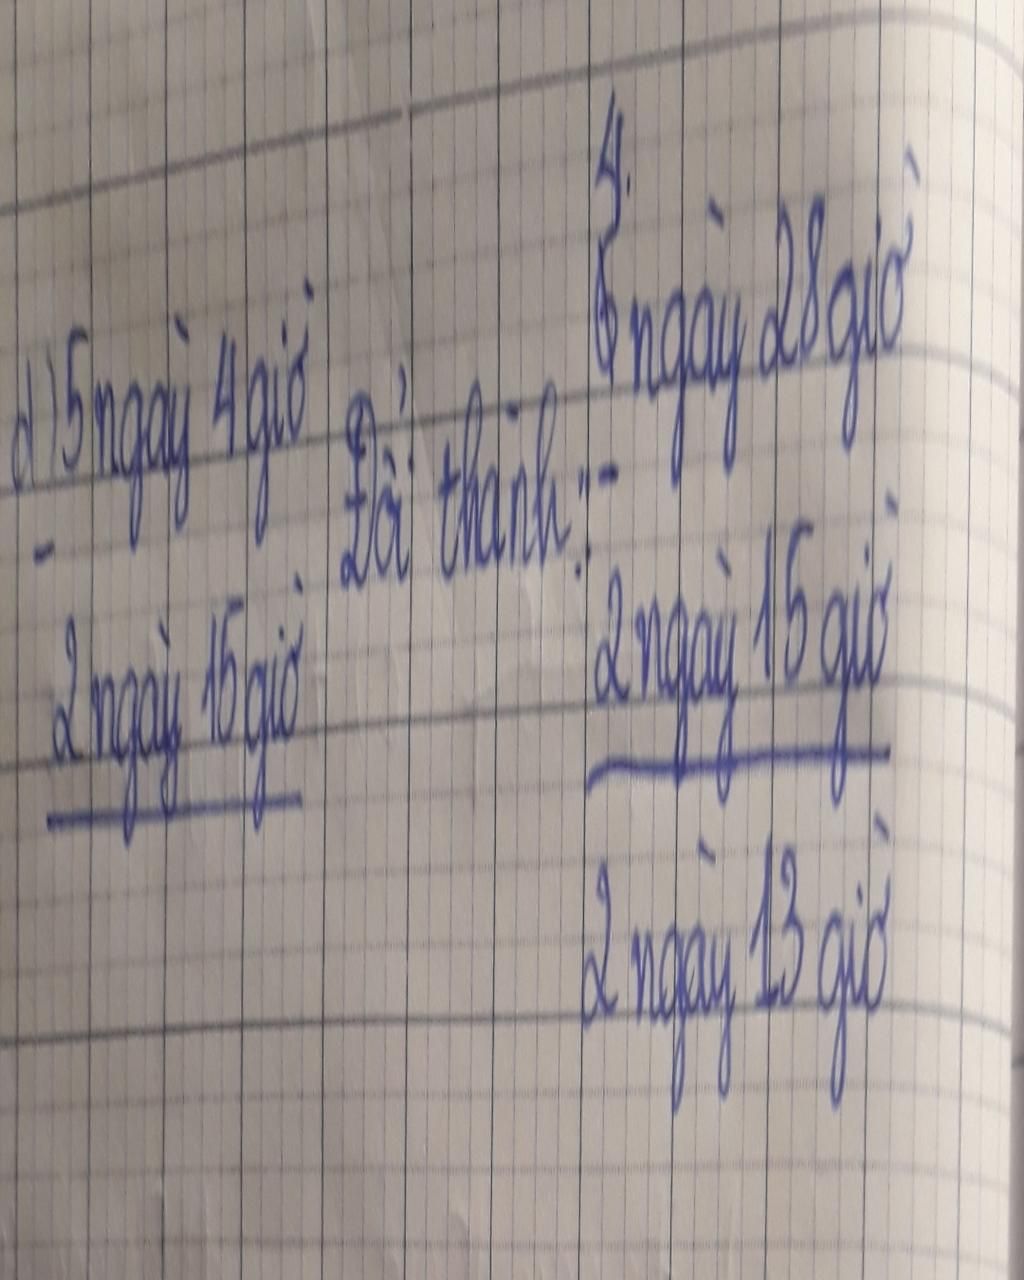 d) 5 ngày 4 giờ
-
2 ngày 15 giờ
Đổi thành:
4
ngày 28 giờ
-
2 ngày 15 giờ
2 ngày 13 giờ